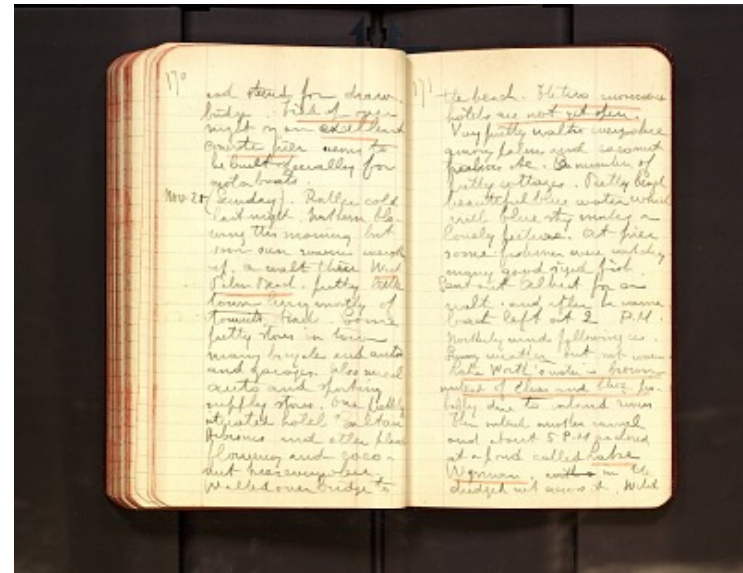 170
and stand for draw
bridge. Tied up over
night in an excellent
concrete pier seems to
be built specially for
motorboats.
Nov. 20 (Sunday). Rather cold
last night. Northern blo-
wing this morning but
soon sun warms enough
up. a walk thru West
Palm Beach. pretty little
town living mostly of
tourists trade. Some
pretty stores in town
many bicycle and auto
and garages. Also several
auto and sporting
supply stores. One prettily
situated hotel Salt air
and other place
flowering and coco-
nut trees everywhere.
Walked over bridge to
171
the beach. The two immense
hotels are not yet open.
Very pretty walks everywhere
among palms and cocoanut
etc. A number of
pretty cottages. Pretty beach
beautiful blue water which
with blue sky makes a
lovely picture. At pier
some fishermen were catching
many good sized fish.
Sent out Albert for a
walk and when he came
back left at 2 P.M.
Northerly winds following us.
Sunny weather but not warm
Lake Worth's water is brown
instead of clear and blue, pro-
bably due to inland rivers
Then entered another canal
and about 5 P.M. anchored
at a pond called Lake
Wyman in the
dredged cut across it. Wild